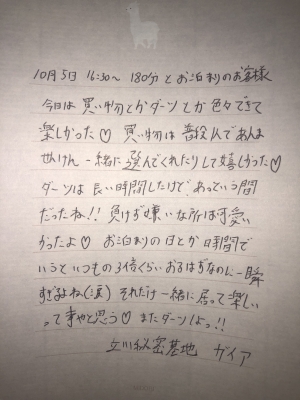 10月5日 16:30〜 180分とお泊りのお客様
今日は買い物とかダーツとか色々できて
楽しかった♡ 買い物は普段人であんま
せんけん一緒に選んでくれたりして嬉しかった♡
ダーツは長い時間したけど、あっていう間
だったね!! 負けず嫌いな所は可愛い
かったよ♡ お泊りの日とか時間で
いうといつもの3倍くらいおるはずなのに一瞬
すぎるよね(涙) それだけ一緒に居って楽しい
って事やと思う♡ またダーツしよっ!!
立川秘密基地 ガイア